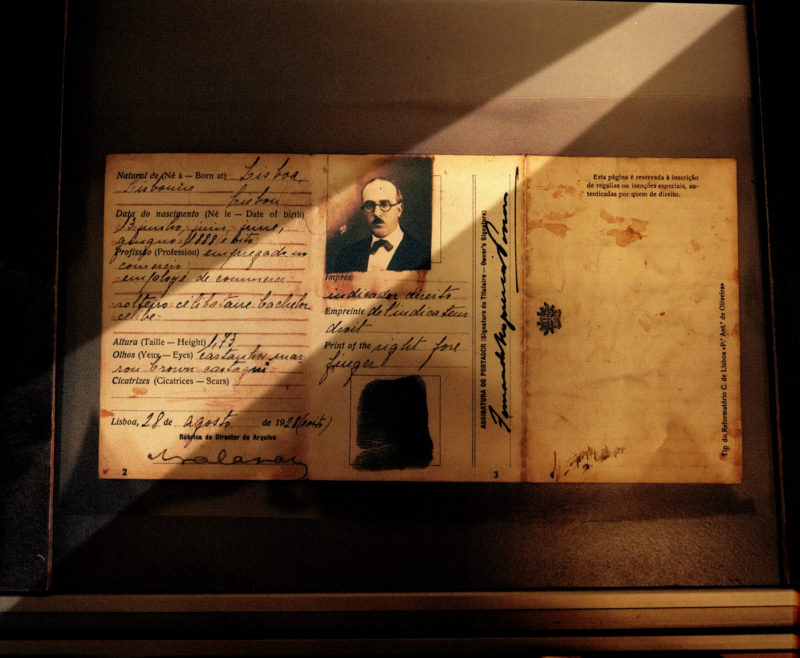 Natural de (Né à — Born at) Lisboa,
Lisbonne
Lisbon
Data do nascimento (Né le — Date of birth)
13 junho, juin, june,
1888 e oito
Profissão (Profession) empregado no
comercio
employé de commerce
solteiro célibataire bachelor
celibe
Altura (Taille — Height) 1,73
Olhos (Yeux — Eyes) castanhos mar
ron brown castagni
Cicatrizes (Cicatrices — Scars)
Lisboa, 28 de agosto de 1928 (oito)
Rúbrica do Director do Arquivo
2
Impres
indicador direito
Empreinte de l'indicateur
droit
Print of the right fore
finger
3
ASSINATURA DO PORTADOR (Signature du Titulaire — Owner's Signature)
Fernando Nogueira Pessoa
Esta página é reservada à inscrição
de regalias ou isenções especiais, au-
tenticadas por quem de direito.
Tip do Reformatório C. de Lisboa «P.e Ant.o de Oliveira»
4